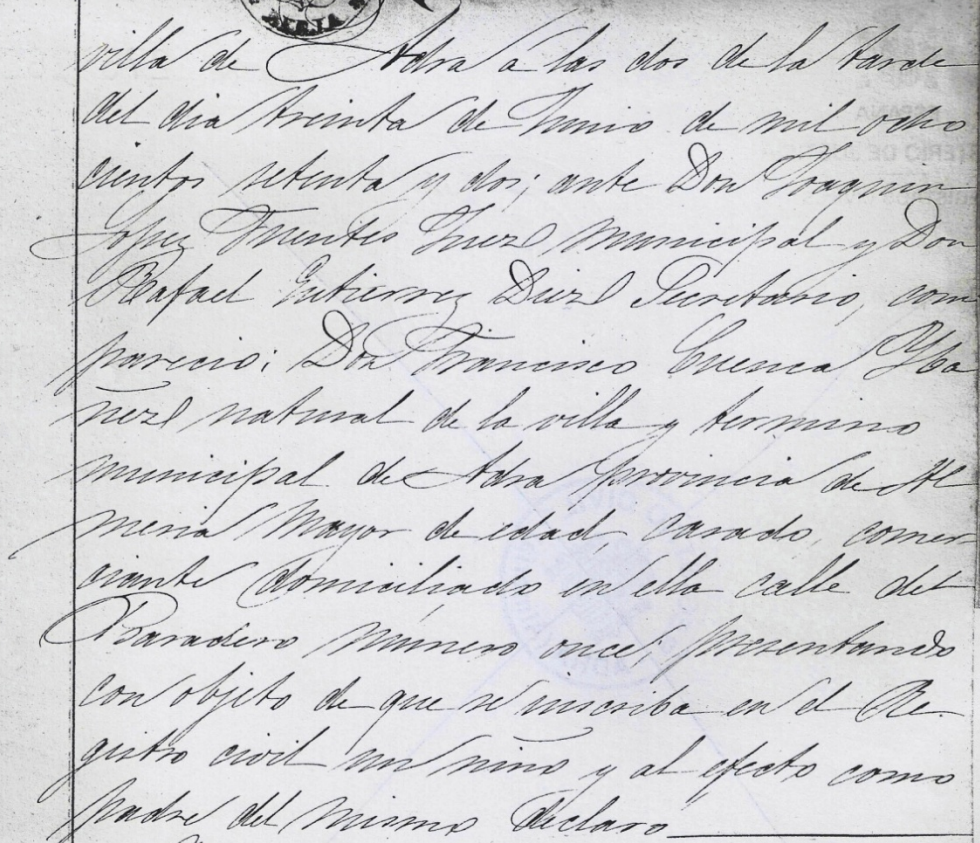 villa de Adra a las dos de la tarde
del dia treinta de Junio de mil ocho
cientos setenta y dos; ante Don Joaquin
Lopez Fuentes Juez Municipal y Don
Rafael Gutierrez Diez Secretario, com
parecio; Don Francisco Cuenca Yba
ñez natural de la villa y termino
municipal de Adra provincia de Al
meria Mayor de edad, casado, comer
ciante domiciliado en ella calle del
Baradero número once; presentando
con objeto de que se inscriba en el Re-
gistro civil un niño y al efecto como
padre del mismo declaro